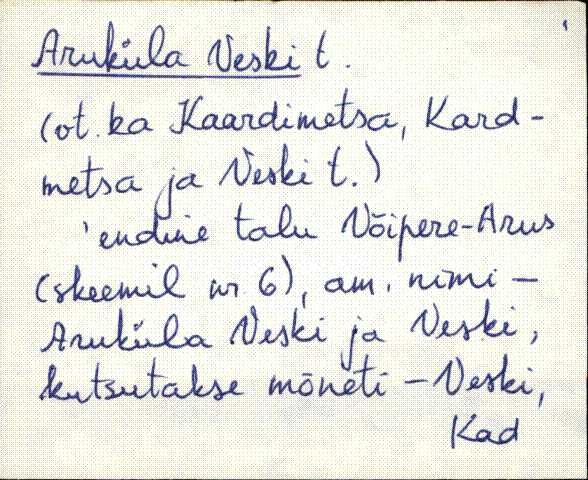 Aruküla Veski t.
(ot. ka Kaardimetsa, Kard-
metsa ja Veski t.)
'endine talu Võipere-Arus
(skeemil nr 6), am. nimi -
Aruküla Veski ja Veski,
kutsutakse mõneti - Veski,
Kad